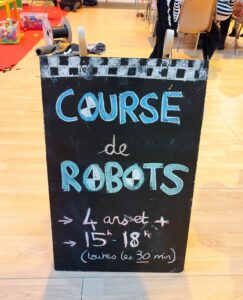 COURSE
de
ROBOTS
→ 4 ans et +
→ 15h - 18h
(toutes les 30 min)